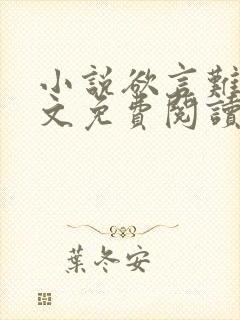 小說欲言難
文免費閱讀
葉冬安